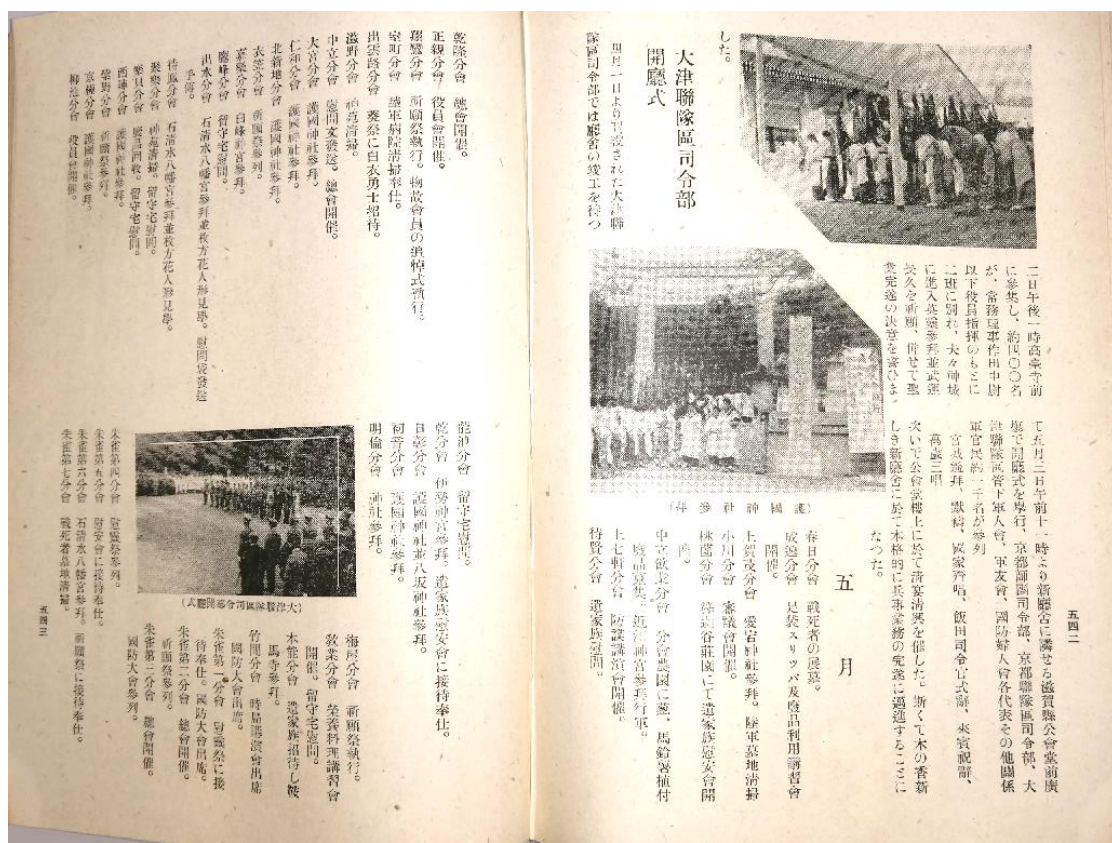 二日午後一時高臺寺前
に參集し、約四〇〇名
が、常務理事作田中尉
以下役員指揮のもとに
二班に別れ、夫々神域
に進入英靈參拜並武運
長久を祈願、併せて聖
業完遂の決意を誓ひま
した。
大津聯隊區司令部
開廳式
四月一日より再設された大津聯
隊區司令部では廳舍の竣工を待つ
(護國神社參拜)
て五月二日午前十一時より新廳舍に隣せる滋賀縣公會堂前廣
場で開廳式を擧行、京都師團司令部、京都聯隊區司令部、大
津聯隊區管下軍人會、軍友會、國防婦人會各代表その他關係
軍官民約一千名が參列
宮城遙拜、默禱、國歌齊唱、飯田司令官式辭、來賓祝辭、
萬歲三唱
次いで公會堂樓上に於て清宴淸興を催した。斯くて木の香新
しき新廳舍に於て本格的に兵事業務の完遂に邁進することに
なつた。
五月
春日分會 戰死者の展墓。
成逸分會 足袋スリッパ及廢品利用講習會
開催。
上賀茂分會 愛宕神社參拜。陸軍墓地清掃
小川分會 審議會開催。
桃薗分會 莊園にて遺家族慰安會開
催。
中立敎業分會 分會農園に葱、馬鈴薯植付
廢品蒐集。近江神宮參拜行軍。
上七軒分會 防諜講演會開催。
待賢分會 遺家族慰問。
五四二
乾隆分會 總會開催。
正親分會 役員會開催。
翔鸞分會 祈願祭執行。物故會員の追悼式執行。
室町分會 陸軍病院淸掃奉仕。
出雲路分會 葵祭に白衣勇士招待。
滋野分會 神苑淸掃。
中立分會 慰問文發送。總會開催。
大宮分會 護國神社參拜。
仁和分會 護國神社參拜。
北新地分會 護國神社參拜。
衣笠分會 祈願祭參列。
嘉樂分會 祈願祭參列。
鷹峰分會 白峰神宮參拜。
出水分會 留守宅慰問。
石清水八幡宮參拜並枚方花人形見學。慰問袋發送
手傳。
待鳳分會 石清水八幡宮參拜並枚方花人形見學。
聚樂分會 神苑淸掃。留守宅慰問。
樂只分會 廢品回收。留守宅慰問。
西陣分會 護國神社參拜。
紫野分會 祈願祭參列。
京極分會 護國神社參拜。
柳池分會 役員會開催。
龍池分會 留守宅慰問。
乾分會 伊勢神宮參拜。遺家族慰安會に接待奉仕。
日彰分會 護國神社並八坂神社參拜。
初音分會 護國神社參拜。
明倫分會 神社參拜。
(大津聯隊區司令部開廳式)
梅屋分會 祈願祭執行。
敎業分會 榮養料理講習會
開催。留守宅慰問。
本能分會 遺家族招待し鞍
馬寺參拜。
竹間分會 時局講演會出席
國防大會出席。
朱雀第一分會 慰靈祭に接
待奉仕。國防大會出席。
朱雀第二分會 總會開催。
祈願祭參列。
朱雀第三分會 總會開催。
國防大會參列。
朱雀第四分會 慰靈祭參列。
朱雀第五分會 慰安會に接待奉仕。
朱雀第六分會 石清水八幡宮參拜。祈願祭に接待奉仕。
朱雀第七分會 戰死者墓地清掃。
五四三